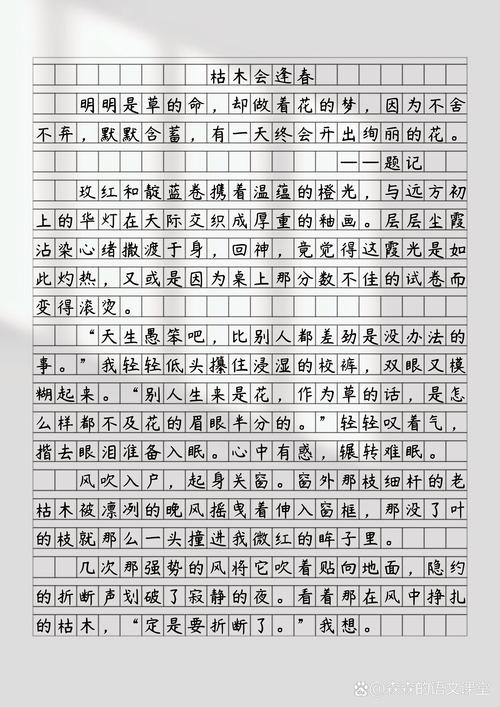 枯木会逢春
明明是草的命，却做着花的梦，因为不舍
不弃，默默含蓄，有一天终会开出绚丽的花。
——题记
玫红和靛蓝卷携着温蕴的橙光，与远方初
上的华灯在天际交织成厚重的釉画。层层尘霞
沾染心绪撒渡于身，回神，竟觉得这霞光是如
此灼热，又或是因为桌上那分数不佳的试卷而
变得滚烫。
“天生愚笨吧，比别人都差劲是没办法的
事。”我轻轻低头攥住浸湿的校裤，双眼又模
糊起来。“别人生来是花，作为草的话，是怎
么样都不及花的眉眼半分的。”轻轻叹着气，
揩去眼泪准备入眠。心中有惑，辗转难眠。
风吹入户，起身关窗。窗外那枝细杆的老
枯木被凛冽的晚风摇曳着伸入窗框，那没了叶
的枝就那么一头撞进我微红的眸子里。
几次那强势的风将它吹着贴向地面，隐约
的折断声划破了寂静的夜。看着那在风中挣扎
的枯木，“定是要折断了。”我想。
@森森的语文课堂